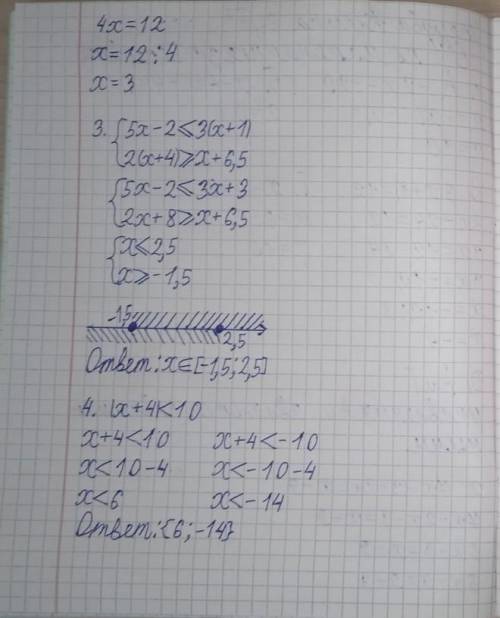 4x=12
x=12:4
x=3
3. {5x-2⩽3(x+1)
2(x+4)⩾x+6,5
{5x-2⩽3x+3
2x+8⩾x+6,5
{x⩽2,5
x⩾-1,5
-1,5
2,5
Ответ: x∈[-1,5; 2,5]
4. |x+4<10
x+4<10 x+4<-10
x<10-4 x<-10-4
x<6 x<-14
Ответ: {6; -14}